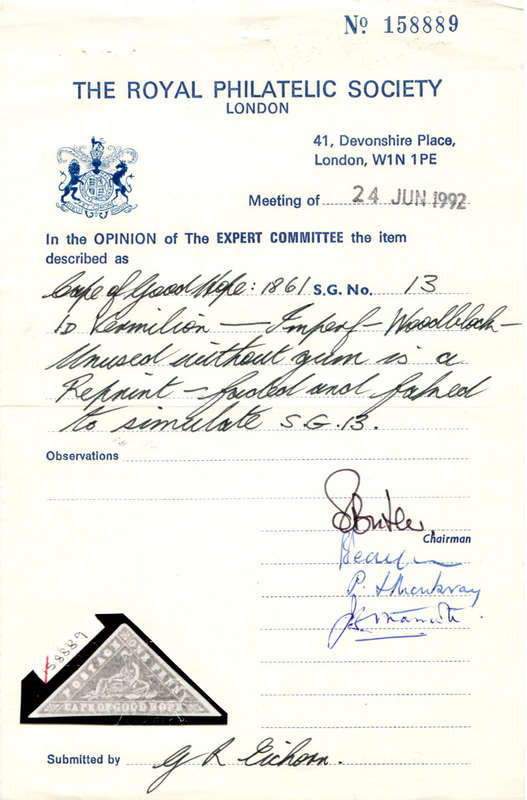 Nº 158889
THE ROYAL PHILATELIC SOCIETY
LONDON
41, Devonshire Place,
London, W1N 1PE
Meeting of 24 JUN 1992
In the OPINION of The EXPERT COMMITTEE the item
described as
Cape of Good Hope: 1861 S.G. No. 13
1D Vermilion — Imperf — Woodblock —
Unused without gum is a
Reprint — faded and
to simulate S.G. 13.
Observations
Butler
Chairman
58889
POSTAGE
CAPE OF GOOD HOPE
Submitted by G R Eichorn.